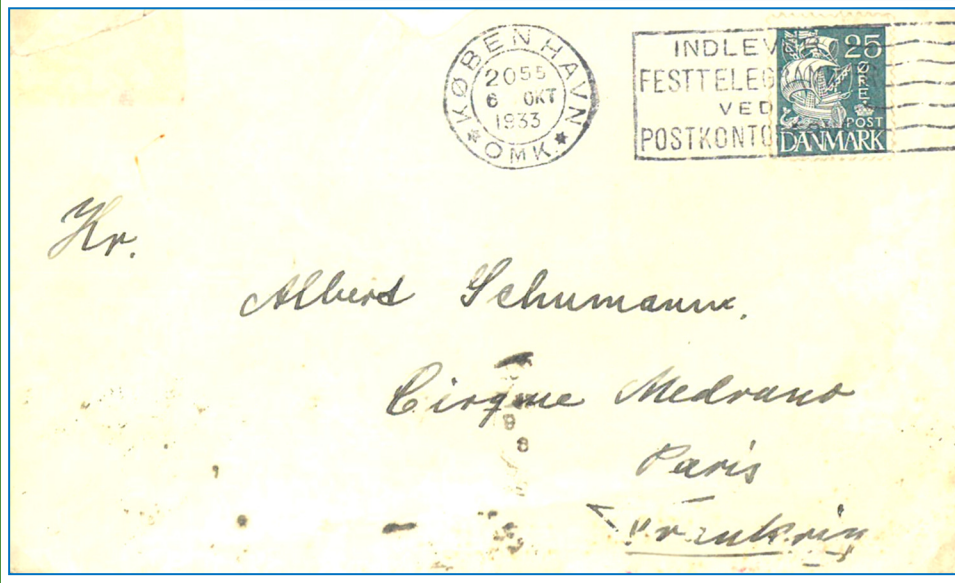 KØBENHAVN
2055
6 OKT
1933
* OMK. *
INDLEVER
FESTTELEGRAMMER
VED
POSTKONTO
25
ØRE
POST
DANMARK
Hr.
Albert Schumann.
Cirque Medrano
Paris
Frankrig